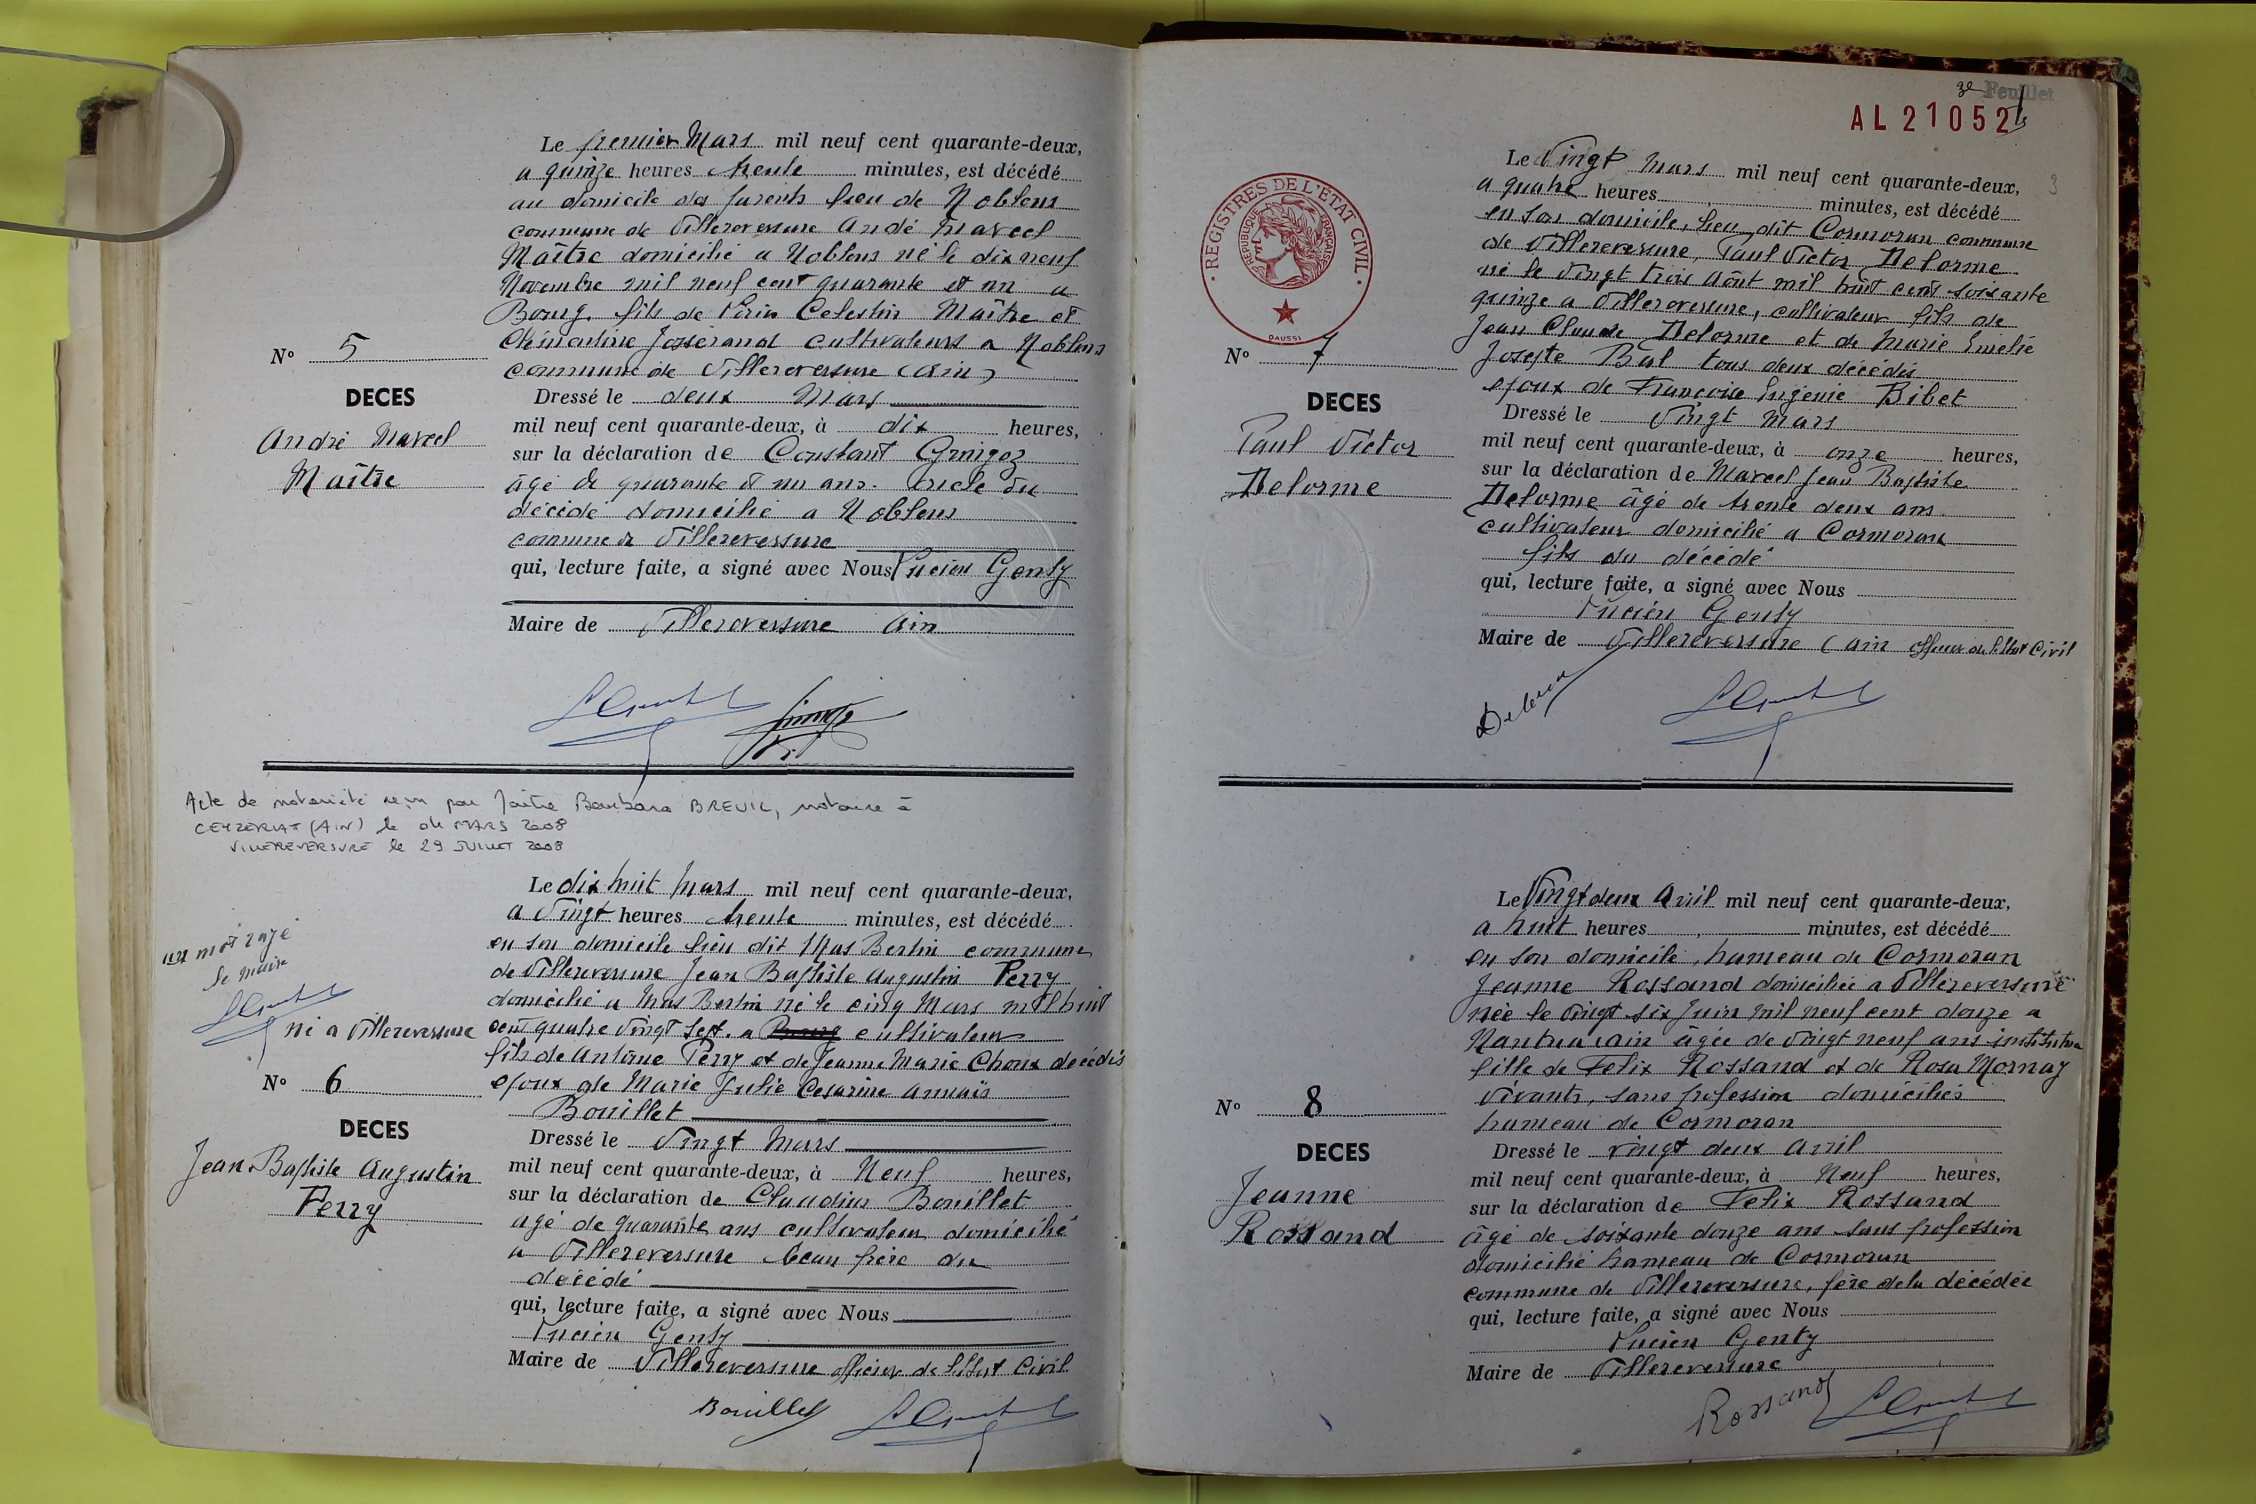 Le premier Mars mil neuf cent quarante-deux,
a quinze heures trente minutes, est décédé
au domicile des parents lieu de Noblens
commune de Villereversure André Marcel
Maître domicilié a Noblens né le dix neuf
Novembre mil neuf cent quarante et un a
Bourg. fils de Celestin Maître et
Josserand cultivateurs a Noblens
commune de Villereversure (Ain)
N° 5
DECES
André Marcel
Maître
Dressé le deux Mars
mil neuf cent quarante-deux, à dix heures,
sur la déclaration de Constant
âgé de quarante et un ans. Oncle du
décédé domicilié a Noblens
commune de Villereversure
qui, lecture faite, a signé avec Nous Lucien Genty
Maire de Villereversure Ain
Acte de notoriété reçu par Maître Barbara BREUIL, notaire à
CEYZERIAT (AIN) le 04 MARS 2008
VILLEREVERSURE le 29 JUILLET 2008
Le dix huit Mars mil neuf cent quarante-deux,
a Vingt heures trente minutes, est décédé
en son domicile lieu dit Mas Bertin commune
de Villereversure Jean Baptiste Augustin Perry
domicilié a Mas Bertin né le cinq Mars mil huit
cent quatre vingt sept. a Bourg cultivateur
fils de Antoine Perry et de Jeanne Marie Choux décédés
époux de Marie Julie Cesarine Annaïs
Bouillet
un mot rayé
le maire
né a Villereversure
N° 6
DECES
Jean Baptiste Augustin
Perry
Dressé le Vingt Mars
mil neuf cent quarante-deux, à Neuf heures,
sur la déclaration de Claudius Bouillet
agé de quarante ans cultivateur domicilié
a Villereversure beau frère du
décédé
qui, lecture faite, a signé avec Nous
Lucien Genty
Maire de Villereversure officier de l'état Civil
Bouillet
3e Feuillet
AL 21052
3
REGISTRES DE L'ETAT CIVIL
REPUBLIQUE FRANÇAISE
DAUSSI
Le Vingt Mars mil neuf cent quarante-deux,
a quatre heures minutes, est décédé
en son domicile, lieu dit Cormoran commune
de Villereversure, Paul Victor Delorme
né le Vingt trois Août mil huit cent soixante
quinze a Villereversure, cultivateur fils de
Jean Claude Delorme et de Marie Emelie
Josepte Bal tous deux décédés
epoux de Françoise Eugenie Bibet
N° 7
DECES
Paul Victor
Delorme
Dressé le Vingt Mars
mil neuf cent quarante-deux, à onze heures,
sur la déclaration de Marcel Jean Baptiste
Delorme âgé de trente deux ans.
cultivateur domicilié a Cormoran
fils du décédé
qui, lecture faite, a signé avec Nous
Lucien Genty
Maire de Villereversure (Ain officier de l'état Civil
Le Vingt deux Avril mil neuf cent quarante-deux,
a huit heures minutes, est décédé
en son domicile, hameau de Cormoran
Jeanne Rossand domiciliée a Villereversure
née le Vingt six Juin mil neuf cent douze a
Nantua Ain âgée de Vingt neuf ans
fille de Felix Rossand et de Rosa Mornay
Vivants, sans profession domiciliés
hameau de Cormoran
N° 8
DECES
Jeanne
Rossand
Dressé le vingt deux Avril
mil neuf cent quarante-deux, à Neuf heures,
sur la déclaration de Felix Rossand
âgé de soixante douze ans sans profession
domicilié hameau de Cormoran
commune de Villereversure, père de la décédée
qui, lecture faite, a signé avec Nous
Lucien Genty
Maire de Villereversure
Rossand